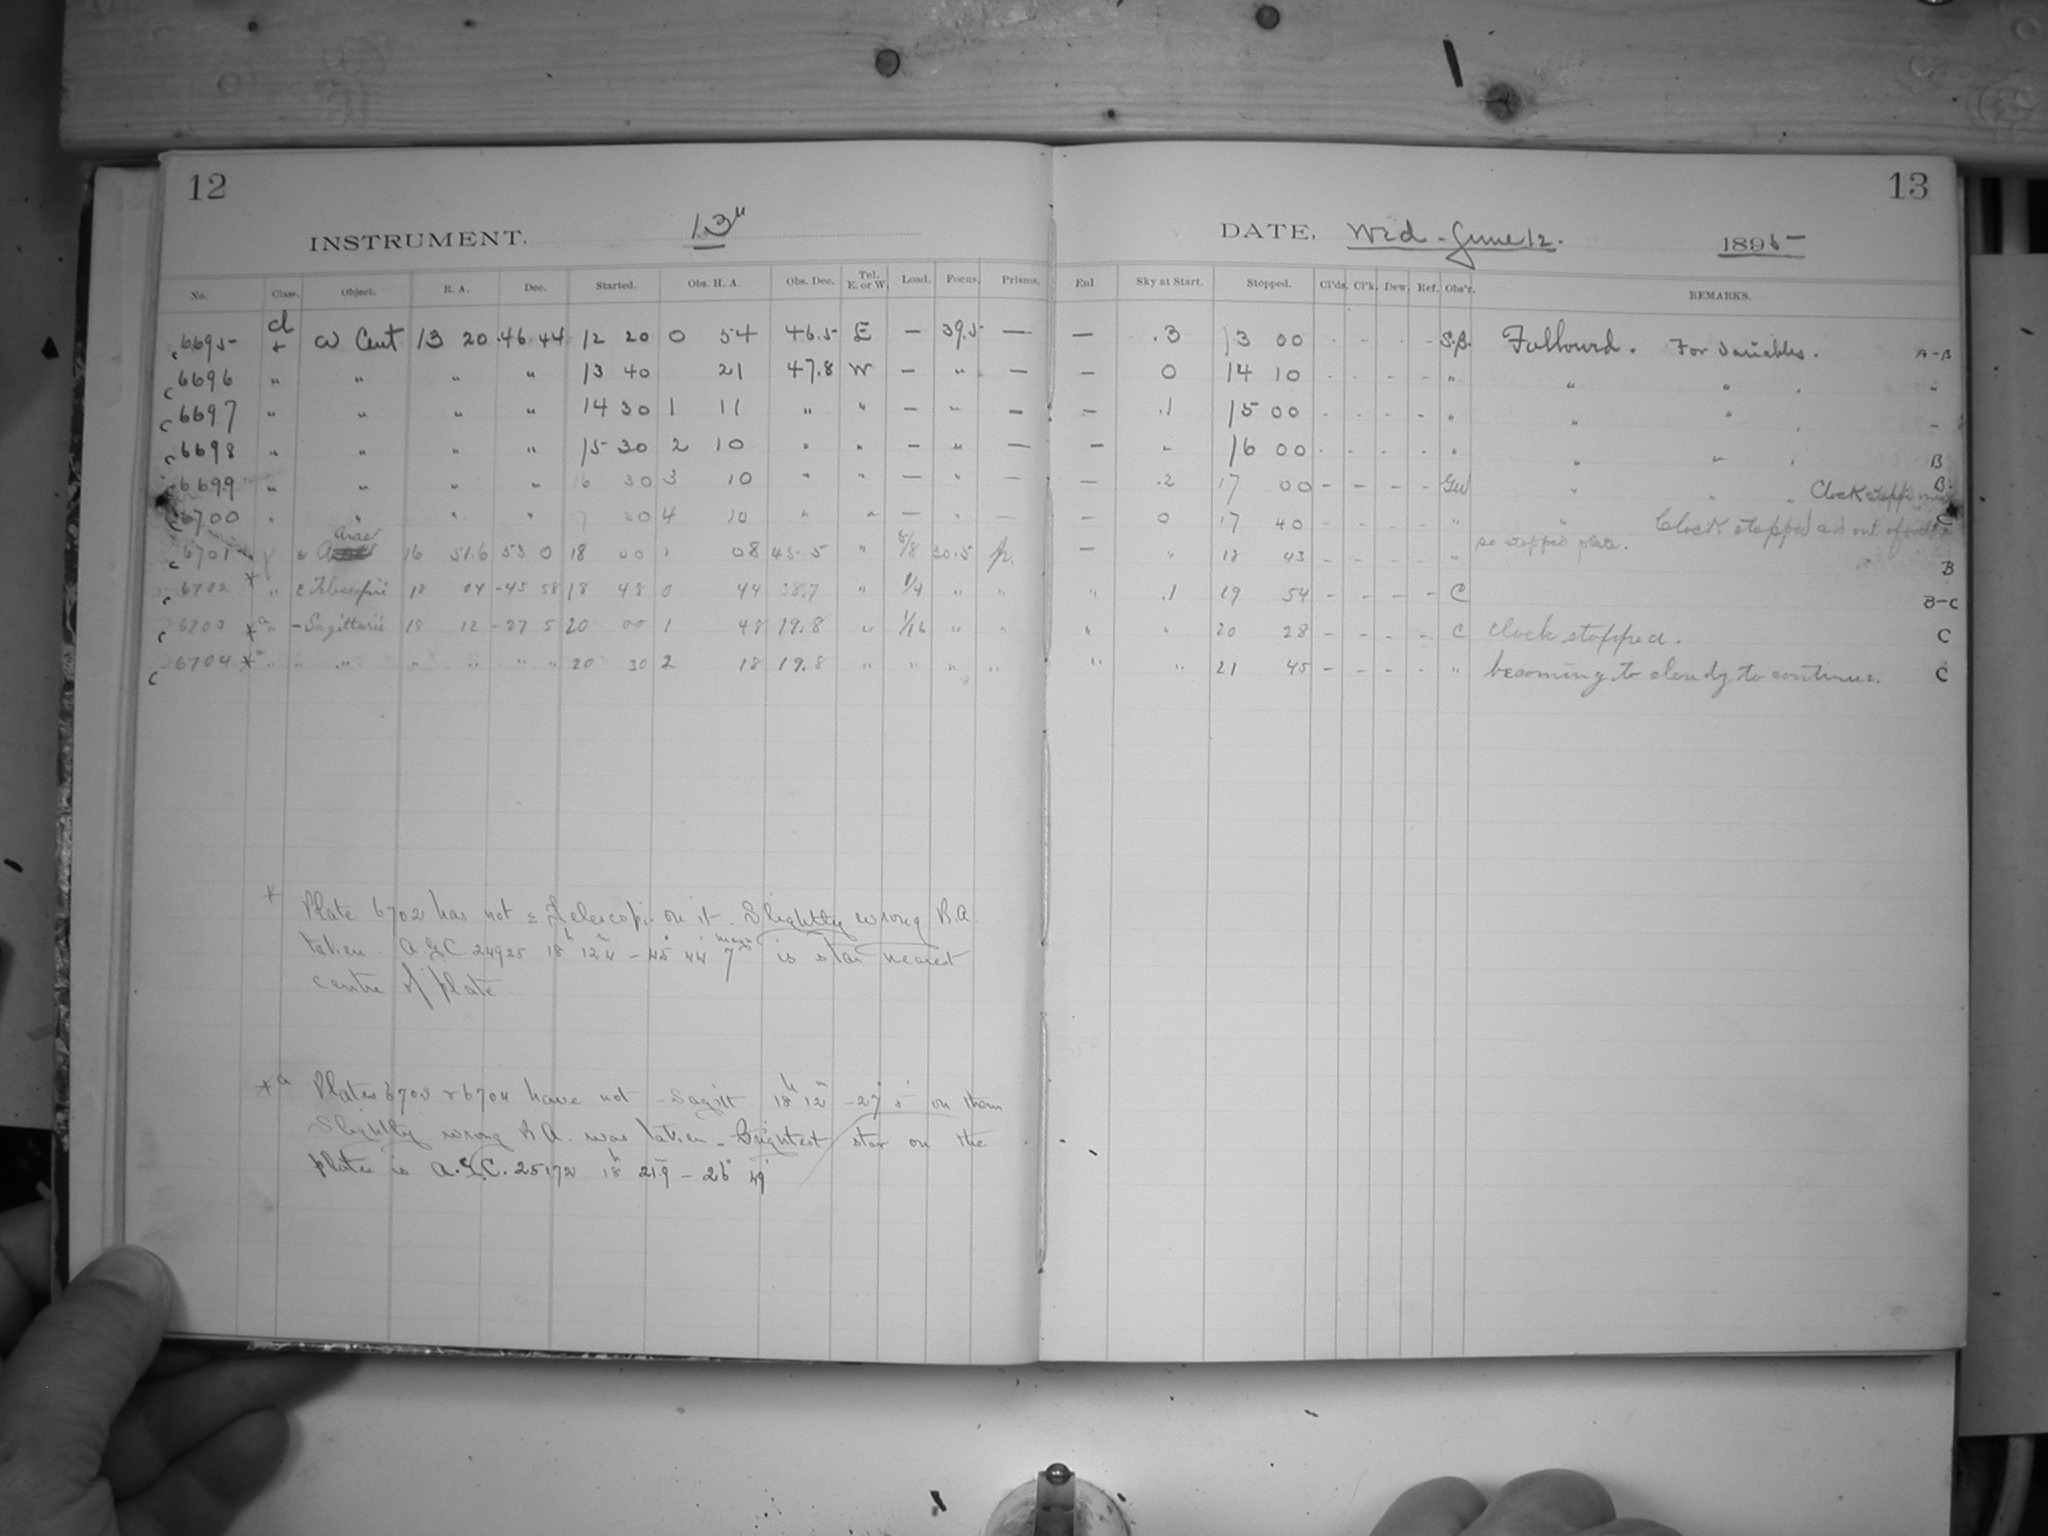 12
INSTRUMENT. 13"
No. Class. Object. R. A. Dec. Started. Obs. H. A. Obs. Dec. Tel. E. or W. Load. Focus. Prisms.
c 6695 d + ω Cent 13 20 -46 44 12 20 0 54 46.5 E — 39.5 —
c 6696 " " " " 13 40 21 47.8 W — " —
c 6697 " " " " 14 30 1 11 " " — " —
c 6698 " " " " 15 30 2 10 " " — " —
c 6699 " " " " 16 30 3 10 " " — " —
c 6700 " " " " 4 10 " " — " —
Arae
c 6701 16 51.6 53 0 18 00 1 08 45.5 " 5/8 30.5 pr.
c 6702 * " ε Telescopii 18 04 -45 58 18 48 0 44 38.7 " 1/4 " "
c 6703 *a " — Sagittarii 18 12 -27 5 20 00 1 48 19.8 " 1/16 " "
c 6704 *a " " " " " " " 20 30 2 18 19.8 " " " "
* Plate 6702 has not ε Telescopi. on it - Slightly wrong R.A.
taken - A.G.C. 24925 18h 12m4 - 45° 44' 7 magn is star nearest
centre of plate
*a Plates 6703 & 6704 have not - Sagitt 18h 12m -27° 5' on them
Slightly wrong R.A. was taken - Brightest star on the
plates is A.G.C. 25172 18h 21m9 - 26° 49'
13
DATE, Wed - June 12. 1895
Enl Sky at Start. Stopped. Cl'ds. Cl'k. Dew. Ref. Obs'r. REMARKS.
— .3 13 00 - - - - S.B. Followed. For Variables. A-B
— 0 14 10 - - - - " " " "
— .1 15 00 - - - - " " " "
— " 16 00 - - - - " " " B
— .2 17 00 - - - - GW " " Clock stopped B
— 0 17 40 - - - - " " Clock stopped and out of order C
so stopped plate.
— " 18 43 " B
" .1 19 54 - - - - C B-C
" " 20 28 - - - - C clock stopped. C
" " 21 45 - - - - " becoming to cloudy to continue. C